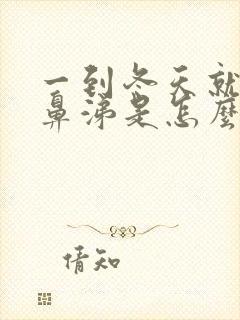 一到冬天就
鼻涕是怎麼
倩知